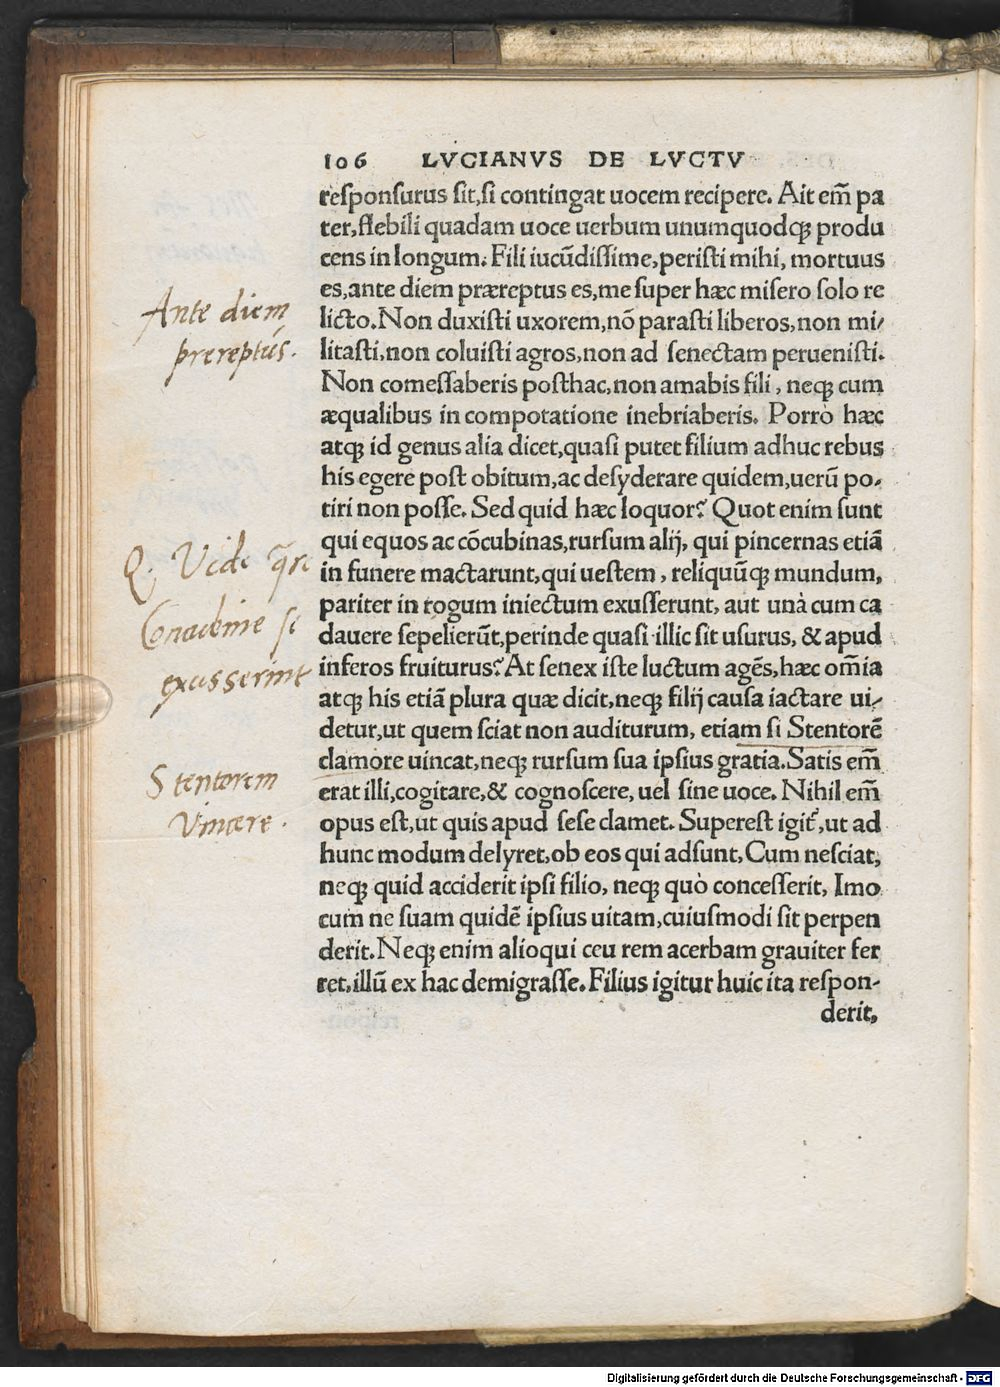 106 LVCIANVS DE LVCTV
responsurus sit,si contingat uocem recipere. Ait em̃ pa
ter,flebili quadam uoce uerbum unumquodqꝫ produ
cens in longum. Fili iucũdissime,peristi mihi, mortuus
es,ante diem præreptus es,me super hæc misero solo re
licto.Non duxisti uxorem,nõ parasti liberos,non mi/
litasti,non coluisti agros,non ad senectam peruenisti.
Non comessaberis posthac,non amabis fili, neqꝫ cum
æqualibus in compotatione inebriaberis. Porrò hæc
atqꝫ id genus alia dicet,quasi putet filium adhuc rebus
his egere post obitum,ac desyderare quidem,uerũ po-
tiri non posse. Sed quid hæc loquor? Quot enim sunt
qui equos ac cõcubinas,rursum alij, qui pincernas etiã
in funere mactarunt,qui uestem, reliquũqꝫ mundum,
pariter in rogum iniectum exusserunt, aut unà cum ca
dauere sepelierũt,perinde quasi illic sit usurus, & apud
inferos fruiturus? At senex iste luctum agẽs,hæc om̃ia
atqꝫ his etiã plura quæ dicit,neqꝫ filij causa iactare ui/
detur,ut quem sciat non auditurum, etiam si Stentorẽ
clamore uincat,neqꝫ rursum sua ipsius gratia.Satis em̃
erat illi,cogitare,& cognoscere, uel sine uoce. Nihil em̃
opus est,ut quis apud sese clamet. Superest igit᷑,ut ad
hunc modum delyret,ob eos qui adsunt,Cum nesciat,
neqꝫ quid acciderit ipsi filio, neqꝫ quò concesserit, Imo
cum ne suam quidẽ ipsius uitam,cuiusmodi sit perpen
derit. Neqꝫ enim alioqui ceu rem acerbam grauiter fer
ret,illũ ex hac demigrasse.Filius igitur huic ita respon-
derit,
Ante diem
prereptús.
Q. Vide
Concubine si
exusserint
Stentorem
Vincere.
Digitalisierung gefördert durch die Deutsche Forschungsgemeinschaft - DFG